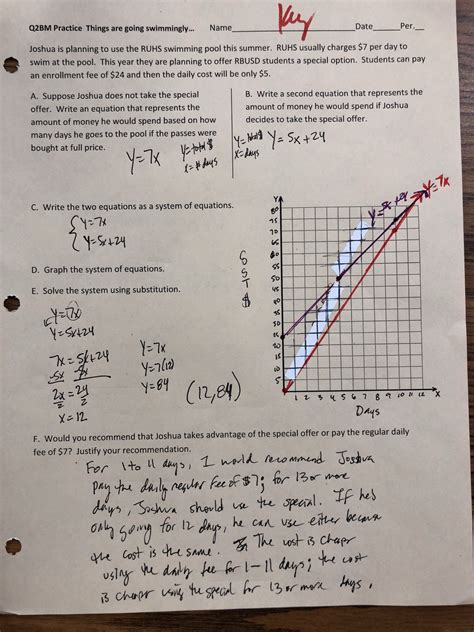 Q2BM Practice Things are going swimmingly... Name Key Date Per.
Joshua is planning to use the RUHS swimming pool this summer. RUHS usually charges $7 per day to
swim at the pool. This year they are planning to offer RBUSD students a special option. Students can pay
an enrollment fee of $24 and then the daily cost will be only $5.
A. Suppose Joshua does not take the special
offer. Write an equation that represents the
amount of money he would spend based on how
many days he goes to the pool if the passes were
bought at full price.
y=7x
y=total $
x=# days
B. Write a second equation that represents the
amount of money he would spend if Joshua
decides to take the special offer.
y=total $ y=5x+24
x=days
C. Write the two equations as a system of equations.
{y=7x
y=5x+24
D. Graph the system of equations.
E. Solve the system using substitution.
y=7x
y=5x+24
7x=5x+24
-5x -5x
2x=24
2 2
x=12
y=7x
y=7(12)
y=84
(12,84)
Y
80
75
70
65
60
55
50
45
40
35
30
25
20
15
10
5
1 2 3 4 5 6 7 8 9 10 11 12 X
Days
COST
$
y=5x+24
y=7x
F. Would you recommend that Joshua takes advantage of the special offer or pay the regular daily
fee of $7? Justify your recommendation.
For 1 to 11 days, I would recommend Joshua
pay the daily regular fee of $7; for 13 or more
days, Joshua should use the special. If he's
only going for 12 days, he can use either because
the cost is the same. The cost is cheaper
using the daily fee for 1-11 days; the cost
is cheaper using the special for 13 or more days.